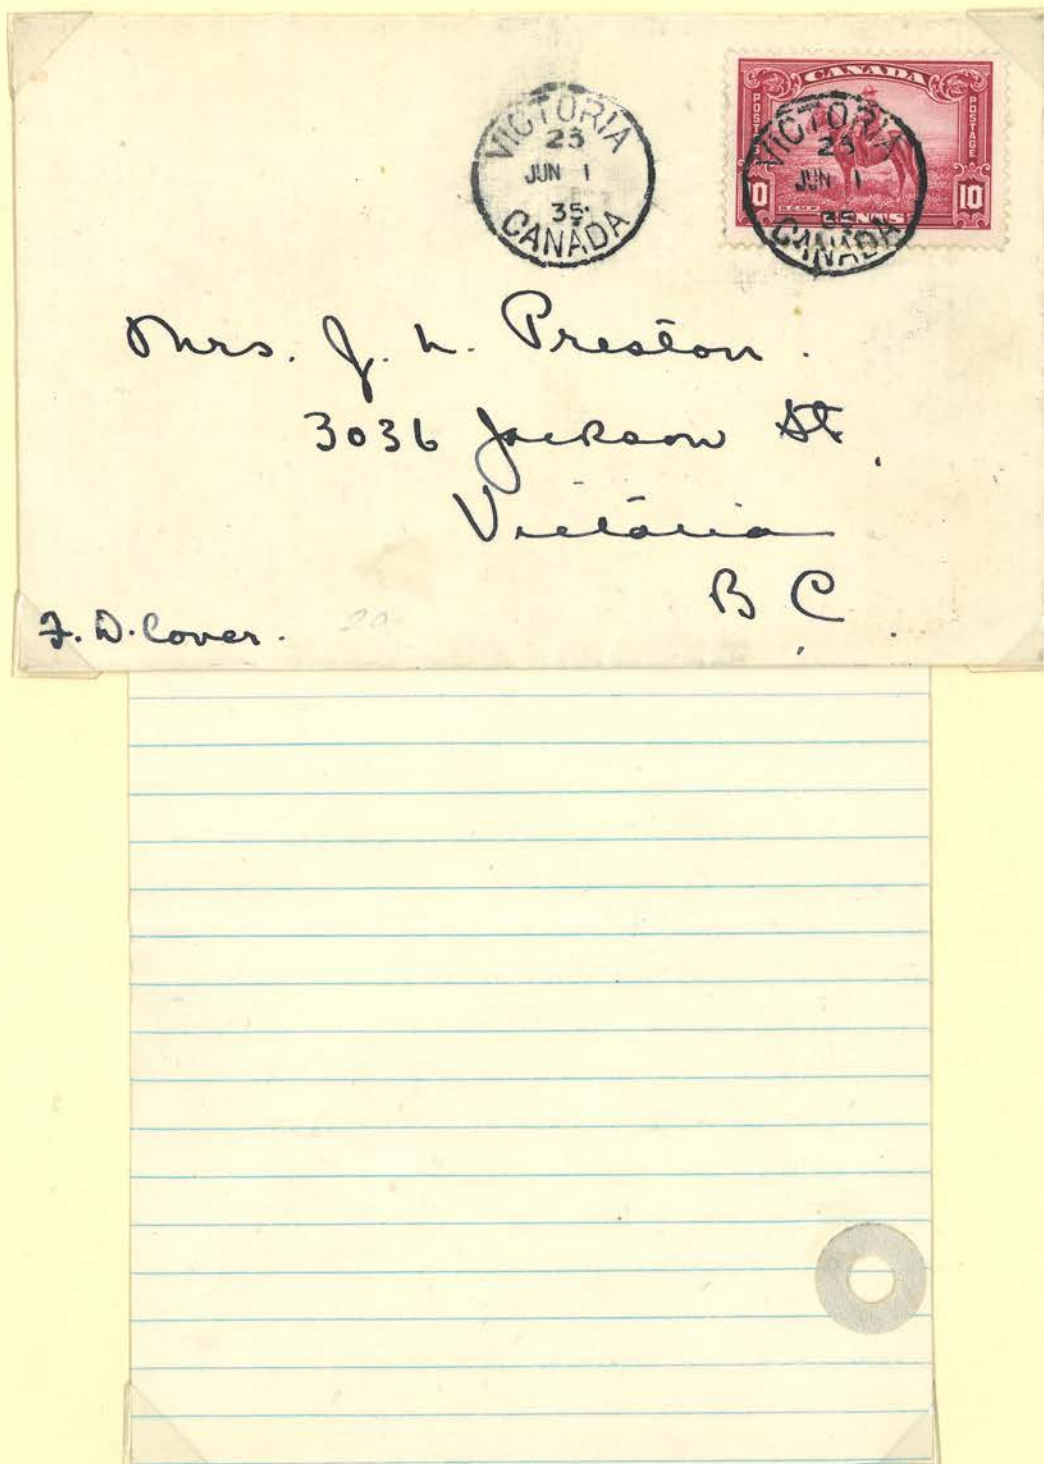 VICTORIA
23
JUN 1
35
CANADA
CANADA
POSTAGE
POSTAGE
10
10
R.C.M.P.
CENTS
VICTORIA
23
JUN 1
35
CANADA
Mrs. J. h. Preston.
3036 Jackson St.
Victoria
B C.
F. D. Cover.
20